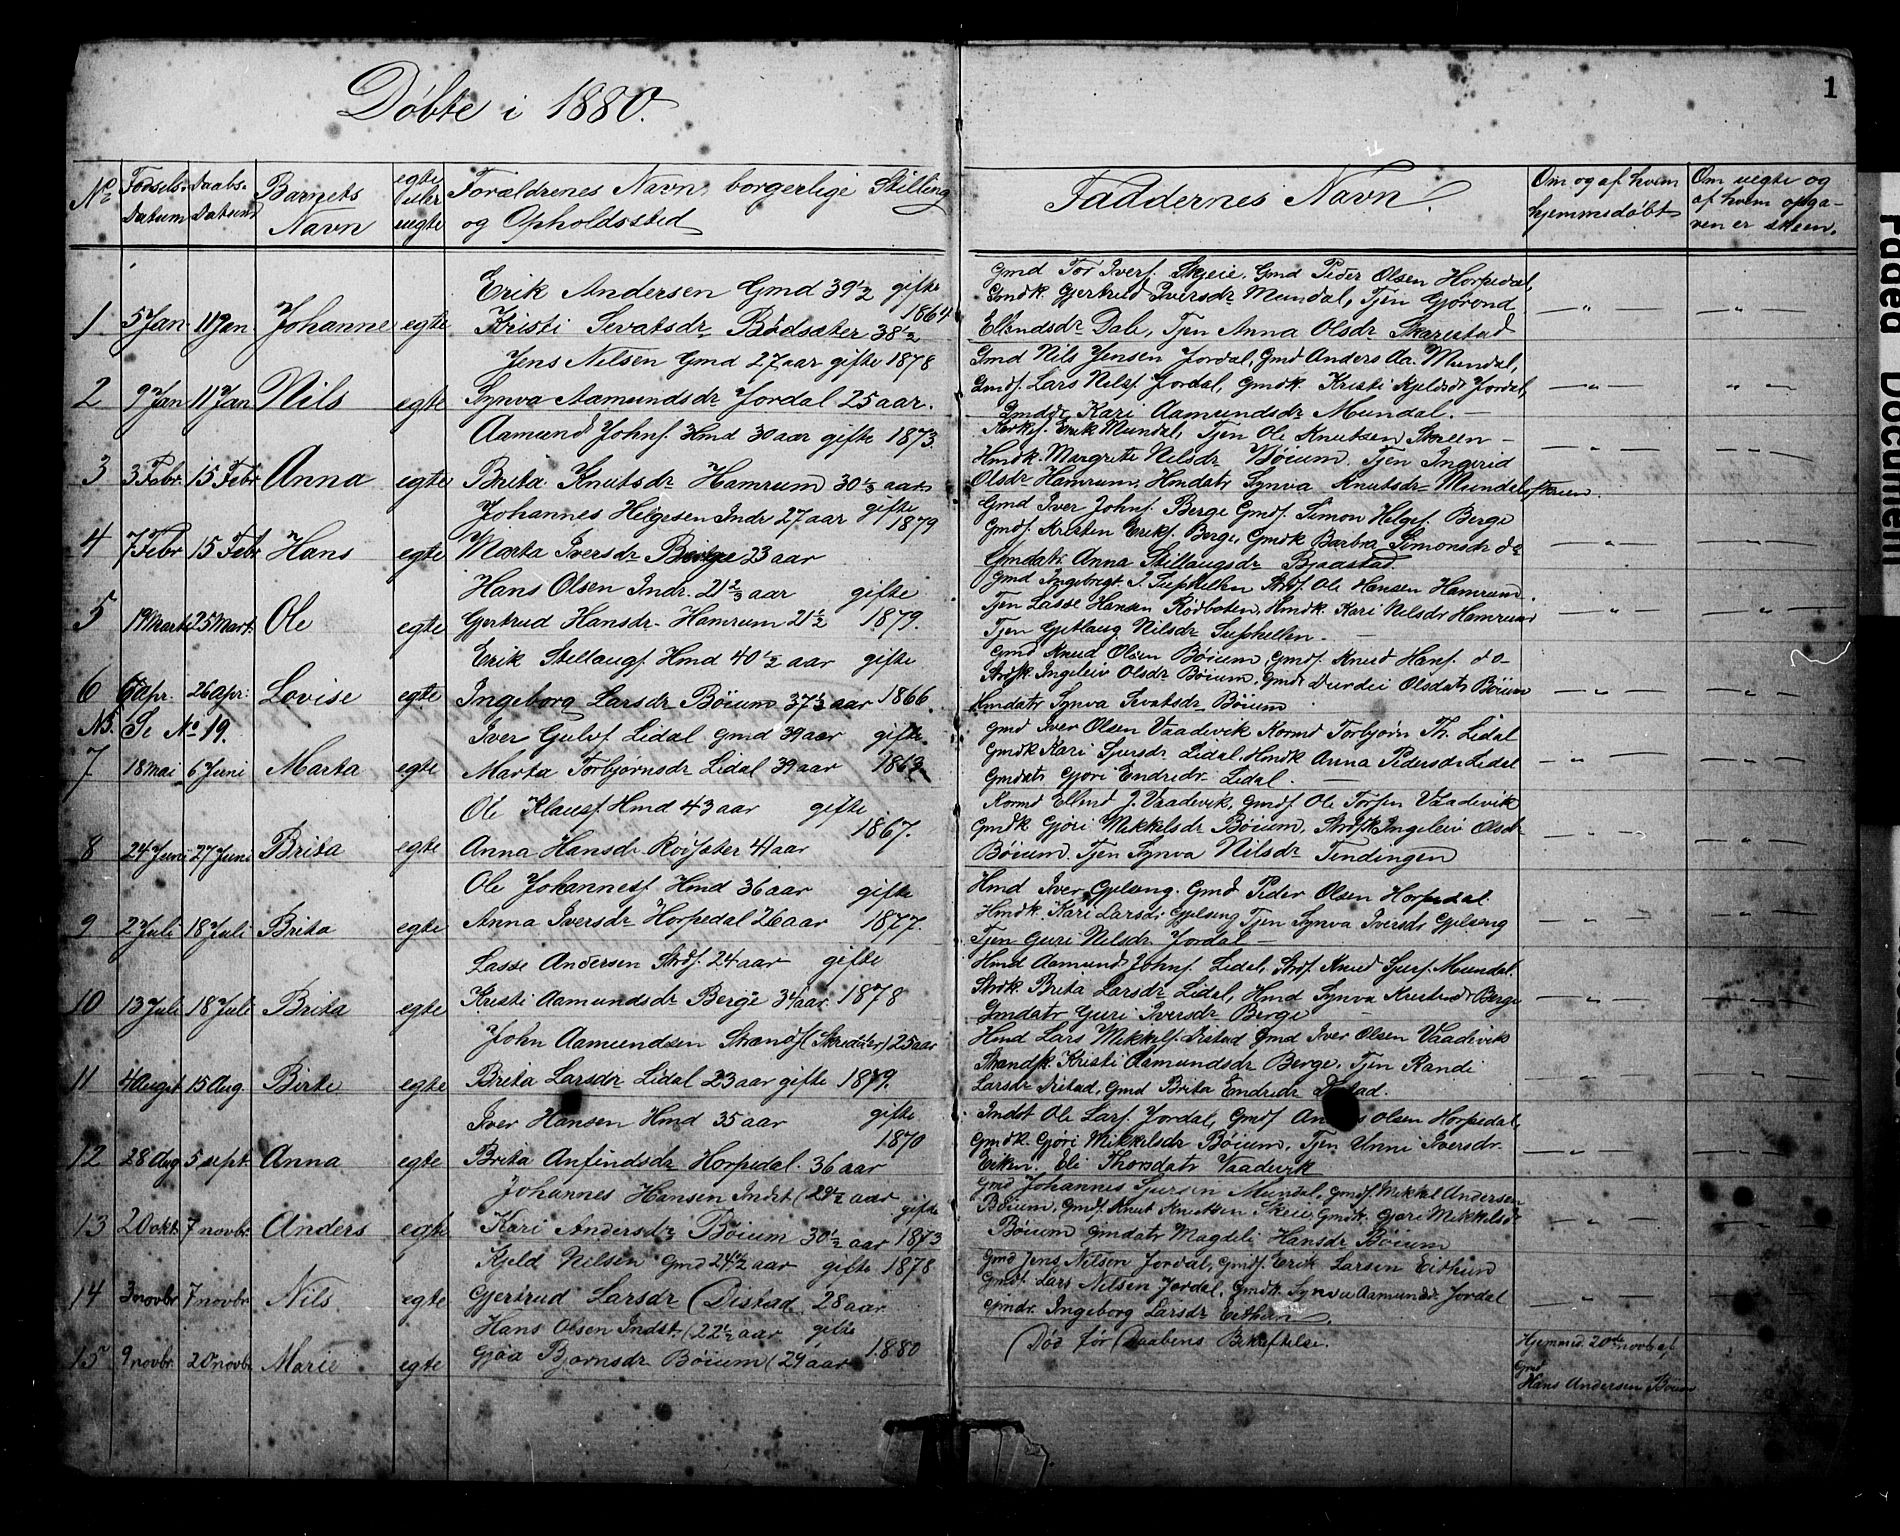 1
Døbte i 1880.
No
Fødsels-
Datum
Daabs-
Datum
Barnets
Navn
egte
eller
uegte
Forældrenes Navn, borgerlige Stilling
og Opholdssted
Faddernes Navn.
Om og af hvem
hjemmedøbt
Om uegte og
af hvem opga-
ven er skeen.
1 5 Jan 11 Jan. Johanne egte
Erik Andersen Gmd 39 1/2 gifte
1864
Kristi Sevatsdr Bødsæter 38 1/2
Gmd Tor Iversf. Skjeie. Gmd Peder Olsen Horpedal,
Gmdk. Gjertrud Iversdr Mundal, Tjen Gjørond
Ellendsdr Dale, Tjen Anna Olsdr Skarestad
— „ — — „ —
2 9 Jan 11 Jan Nils egte
Jens Nilsen Gmd 27 aar gifte 1878
Synva Aamundsdr Jordal 25 aar.
Gmd Nils Jensen Jordal, Gmd Anders Aa. Mundal,
Gmdf. Lars Nilsf Jordal, Gmdk. Kristi Kjelsdr Jordal,
Gmddr. Kari Aamundsdr Mundal. —
— „ — „ —
3 3 Febr. 15 Febr Anna egte
Aamund Johnf. Hmd 30 aar gifte 1873.
Brita Knutsdr Hamrum 30 1/3 aar
Erik Mundal, Tjen Ole Knutsen Skreen —
Hmdk. Margrete Nilsdr Bøium. Tjen Ingerid
Olsdr Hamrum, Hmdatr Synva Knutsdr Mundal
— „ — — „ —
4 7 Febr 15 Febr Hans egte
Johannes Helgesen Indr 27 aar gifte
1879
Marta Iversdr Berge 23 aar
Gmd Iver Johnf. Berge Gmdf. Simon Helgef. Berge
Gmdf. Kristen Erikf. Berge, Gmdk Barbra Simonsdr do
Gmdatr. Anna Stillaugsdr Bjaastad
— „ — — „ —
5 19 Marts 25 Mart. Ole egte
Hans Olsen Indr. 21 2/3 aar gifte
Gjertrud Hansdr. Hamrum 21 1/2 1879.
Gmd Ingebrigt J. Suphellen Strdf. Ole Hansen Hamrum.
Tjen Lasse Hansen Rødboten, Hmdk. Kari Nilsdr Hamrum
Tjen Gjetlaug Nilsdr Suphellen. —
„ — „ —
6 6 Apr. 26 Apr. Lovise egte
Erik Stillaugf. Hmd 40 1/2 aar gifte
Ingeborg Larsdr Bøium 37 1/3 aar 1866.
Gmd Knud Olsen Bøium, Gmdf. Knud Hanf. do-
Strdk. Ingeleiv Olsdr Bøium. Gmdr Durdei Olsdatr Bøium
Hmdatr Synva Sevatsdr Bøium
— „ — — „ —
NB. Se No 19.
7 18 Mai 6 Juni Marta egte
Iver Gulvf Lidal Gmd 39 aar gifte
Marta Torbjørnsdr Lidal 39 aar 1863
Gmd Iver Olsen Vaadevik Kormd Torbjørn Th. Lidal
Gmdk Kari Sjursdr Lidal. Hmdk Anna Pedersdr Lidal
Gmdatr Gjøri Endredr Lidal. —
— „ — — „ —
8 24 Juni 27 Juni Brita egte
Ole Klausf Hmd 43 aar gifte
1867.
Anna Hansdr Røisæter 41 aar
Kormd Ellend J. Vaadevik, Gmdf. Ole Torfin Vaadevik
Gmdk Gjøri Mikkelsdr Bøium, Strdfk Ingeleiv Olsdr
Bøium. Tjen Synva Nilsdr Tendingen
— „ — — „ —
9 2 Juli 18 Juli Brita egte
Ole Johannesf Hmd 36 aar gifte
Anna Iversdr Horpedal 26 aar 1877.
Hmd Iver Gjelseng. Gmd Peder Olsen Horpedal.
Hmdk. Kari Larsdr Gjelseng Tjen Synva Iversdr Gjelseng
Tjen Guri Nilsdr. Jordal —
— „ — — „ —
10 13 Juli 18 Juli Brita egte
Lasse Andersen Strdf. 24 aar gifte
Kristi Aamundsdr Berge 34 aar. 1878
Hmd Aamund Johnf. Lidal, Strdf. Knud Sjurf. Mundal.
Strdk. Brita Larsdr Lidal, Hmd Synva Berge
Gmdatr Guri Iversdr Berge —
— „ — — „ —
11 4 August 15 Aug. Birte egte
John Aamundsen Strandf (Skredder) 25 aar
Brita Larsdr Lidal 23 aar gifte 1879.
Hmd Lars Mikkelf. Distad Gmd Iver Olsen Vaadevik
Strandfk. Kristi Aamundsdr Berge. Tjen Randi
Larsdr Distad, Gmd Brita Endredr Distad.
— „ — — „ —
12 28 Aug 5 sept. Anna egte
Iver Hansen Hmd 35 aar gifte
1870
Brita Anfindsdr Horpedal. 36 aar
Indst Ole Larf. Jordal, Gmdf Anders Olsen Horpedal,
Gmdk. Gjøri Mikkelsdr Bøium, Tjen Unni Iversdr.
Eiken. Eli Thorsdatr Vaadevik
— „ — — „ —
13 2 Okt. 7 novbr. Anders egte
Johannes Hansen Indst (29 1/2 aar gifte
Kari Andersdr Bøium 30 1/2 aar 1873
Gmd Johannes Sjursen Mundal, Gmdf. Mikkel Andersen
Bøium, Gmdf. Knut Knutsen Skrei, Gmdk. Gjøri Mikkelsdr
Bøium Gmdatr Magdeli Hansdr Bøium
— „ — — „ —
14 3 novbr 7 novbr Nils egte
Kjeld Nilsen Gmd 24 1/2 aar gifte 1878
Gjertrud Larsdr (Distad 28 aar
Gmd Jens Nilsen Jordal, Gmdf. Erik Larsen Eithun
Gmdf. Lars Nilsen Jordal, Gmdk. Synva Aamundr Jordal
Gmdr. Ingeborg Larsdr Eithun.
— „ — — „ —
15 9 novbr. 20 novbr Marie egte
Hans Olsen Indst. (22 1/2 aar gifte
1880
Gjøa Bjørnsdr Bøium (24 aar
(Død før Daabens Bekræftelse.
Hjemmed. 20de novbr af
Gmd
Hans Andersen Bøium